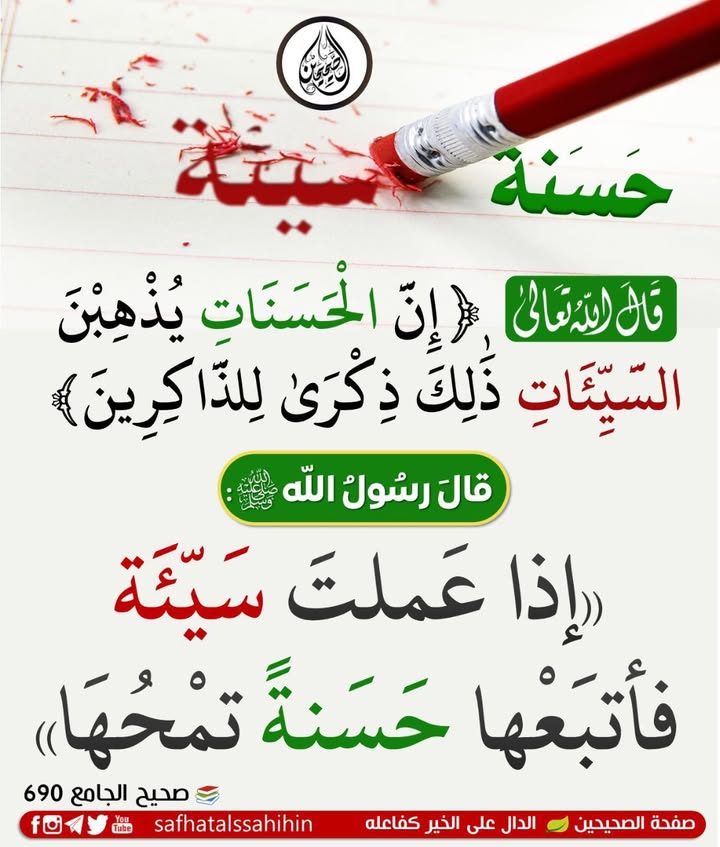 الصحيحين
حَسَنة سيئة
قَالَ اللَّهُ تَعَالَى ﴿إِنَّ الْحَسَنَاتِ يُذْهِبْنَ
السَّيِّئَاتِ ذَٰلِكَ ذِكْرَىٰ لِلذَّاكِرِينَ﴾
قالَ رسُولُ اللّه ﷺ :
((إذا عَملتَ سَيّئَة
فأتبَعْها حَسَنةً تمْحُهَا))
صحيح الجامع 690
صفحة الصحيحين الدال على الخير كفاعله safhatalssahihin You Tube